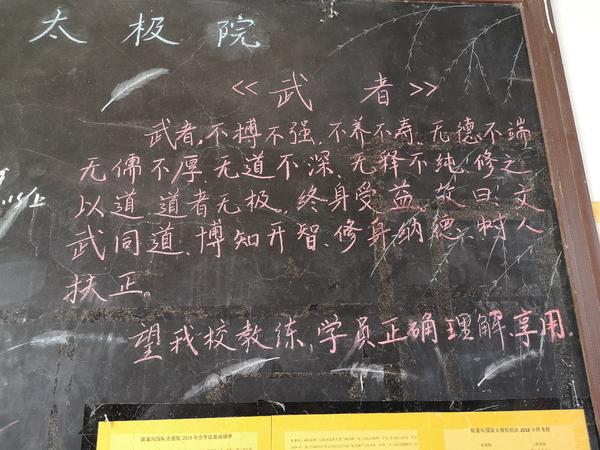 太极院
<<武者>>
武者,不搏不强、不养不寿、无德不端
无儒不厚、无道不深、无释不纯、修之
以道、道者无极、终身受益、故曰:文
武同道、博知开智、修身纳德、树人
扶正。
望我校教练,学员正确理解、享用.